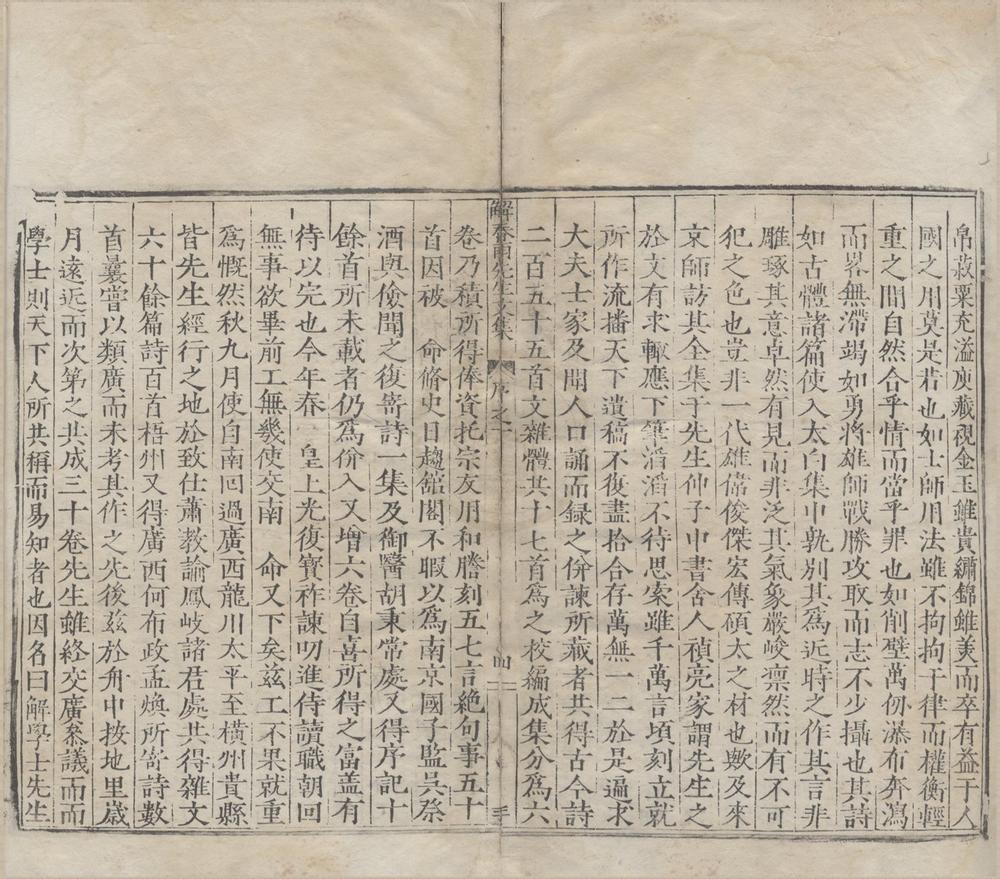 帛菽粟充溢庾藏視金玉雖貴繡錦雖美而卒有益于人
國之用莫是若也如士師用法雖不拘拘于律而權衡輕
重之間自然合乎情而當乎罪也如削壁萬仞瀑布奔瀉
而畧無滯竭如勇將雄師戰勝攻取而志不少攝也其詩
如古體諸篇使入太白集中孰别其爲近時之作其言非
雕琢其意卓然有見而非泛其氣象嚴峻凛然而有不可
犯之色也豈非一代雄偉俊傑宏傳碩大之材也歟及來
京師訪其全集于先生仲子中書舍人禎亮家謂先生之
於文有求輙應下筆滔滔不待思案雖千萬言頃刻立就
所作流播天下遺稿不復盡拾合存萬無一二於是遍求
大夫士家及聞人口誦而録之併諫所藏者共得古今詩
二百五十五首文雜體共十七首爲之校編成集分爲六
解春雨先生文集 序之一 四
卷乃積所得俸資托宗友用和謄刻五七言絶句事五十
首因被 命脩史日趨舘閣不暇以爲南京國子監吳祭
酒與儉聞之復寄詩一集及御醫胡秉常處又得序記十
餘首所未載者仍爲份入又增六卷自喜所得之富盖有
待以完也今年春 皇上光復寳祚諫叨進侍讀職朝回
無事欲畢前工無幾使交南 命又下矣兹工不果就重
爲慨然秋九月使自南回過廣西龍川太平至橫州貴縣
皆先生經行之地於致仕蕭教諭鳳岐諸君處共得雜文
六十餘篇詩百首梧州又得廣西何布政孟煥所寄詩數
首曩嘗以類廣而未考其作之先後兹於舟中按地里歲
月遠近而次第之共成三十卷先生雖終交廣叅議而而
學士則天下人所共稱而易知者也因名曰解學士先生